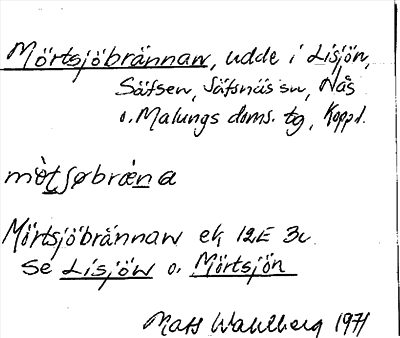 Mörtsjöbrännan, udde i Lisjön,
Säfsen, Säfsnäs sn, Nås
o. Malungs doms. tg, Kopp l.
mòt̠ʃøbræn̠a
Mörtsjöbrännan ek 12E 3c
se Lisjön o. Mörtsjön
Mats Wahlberg 1971